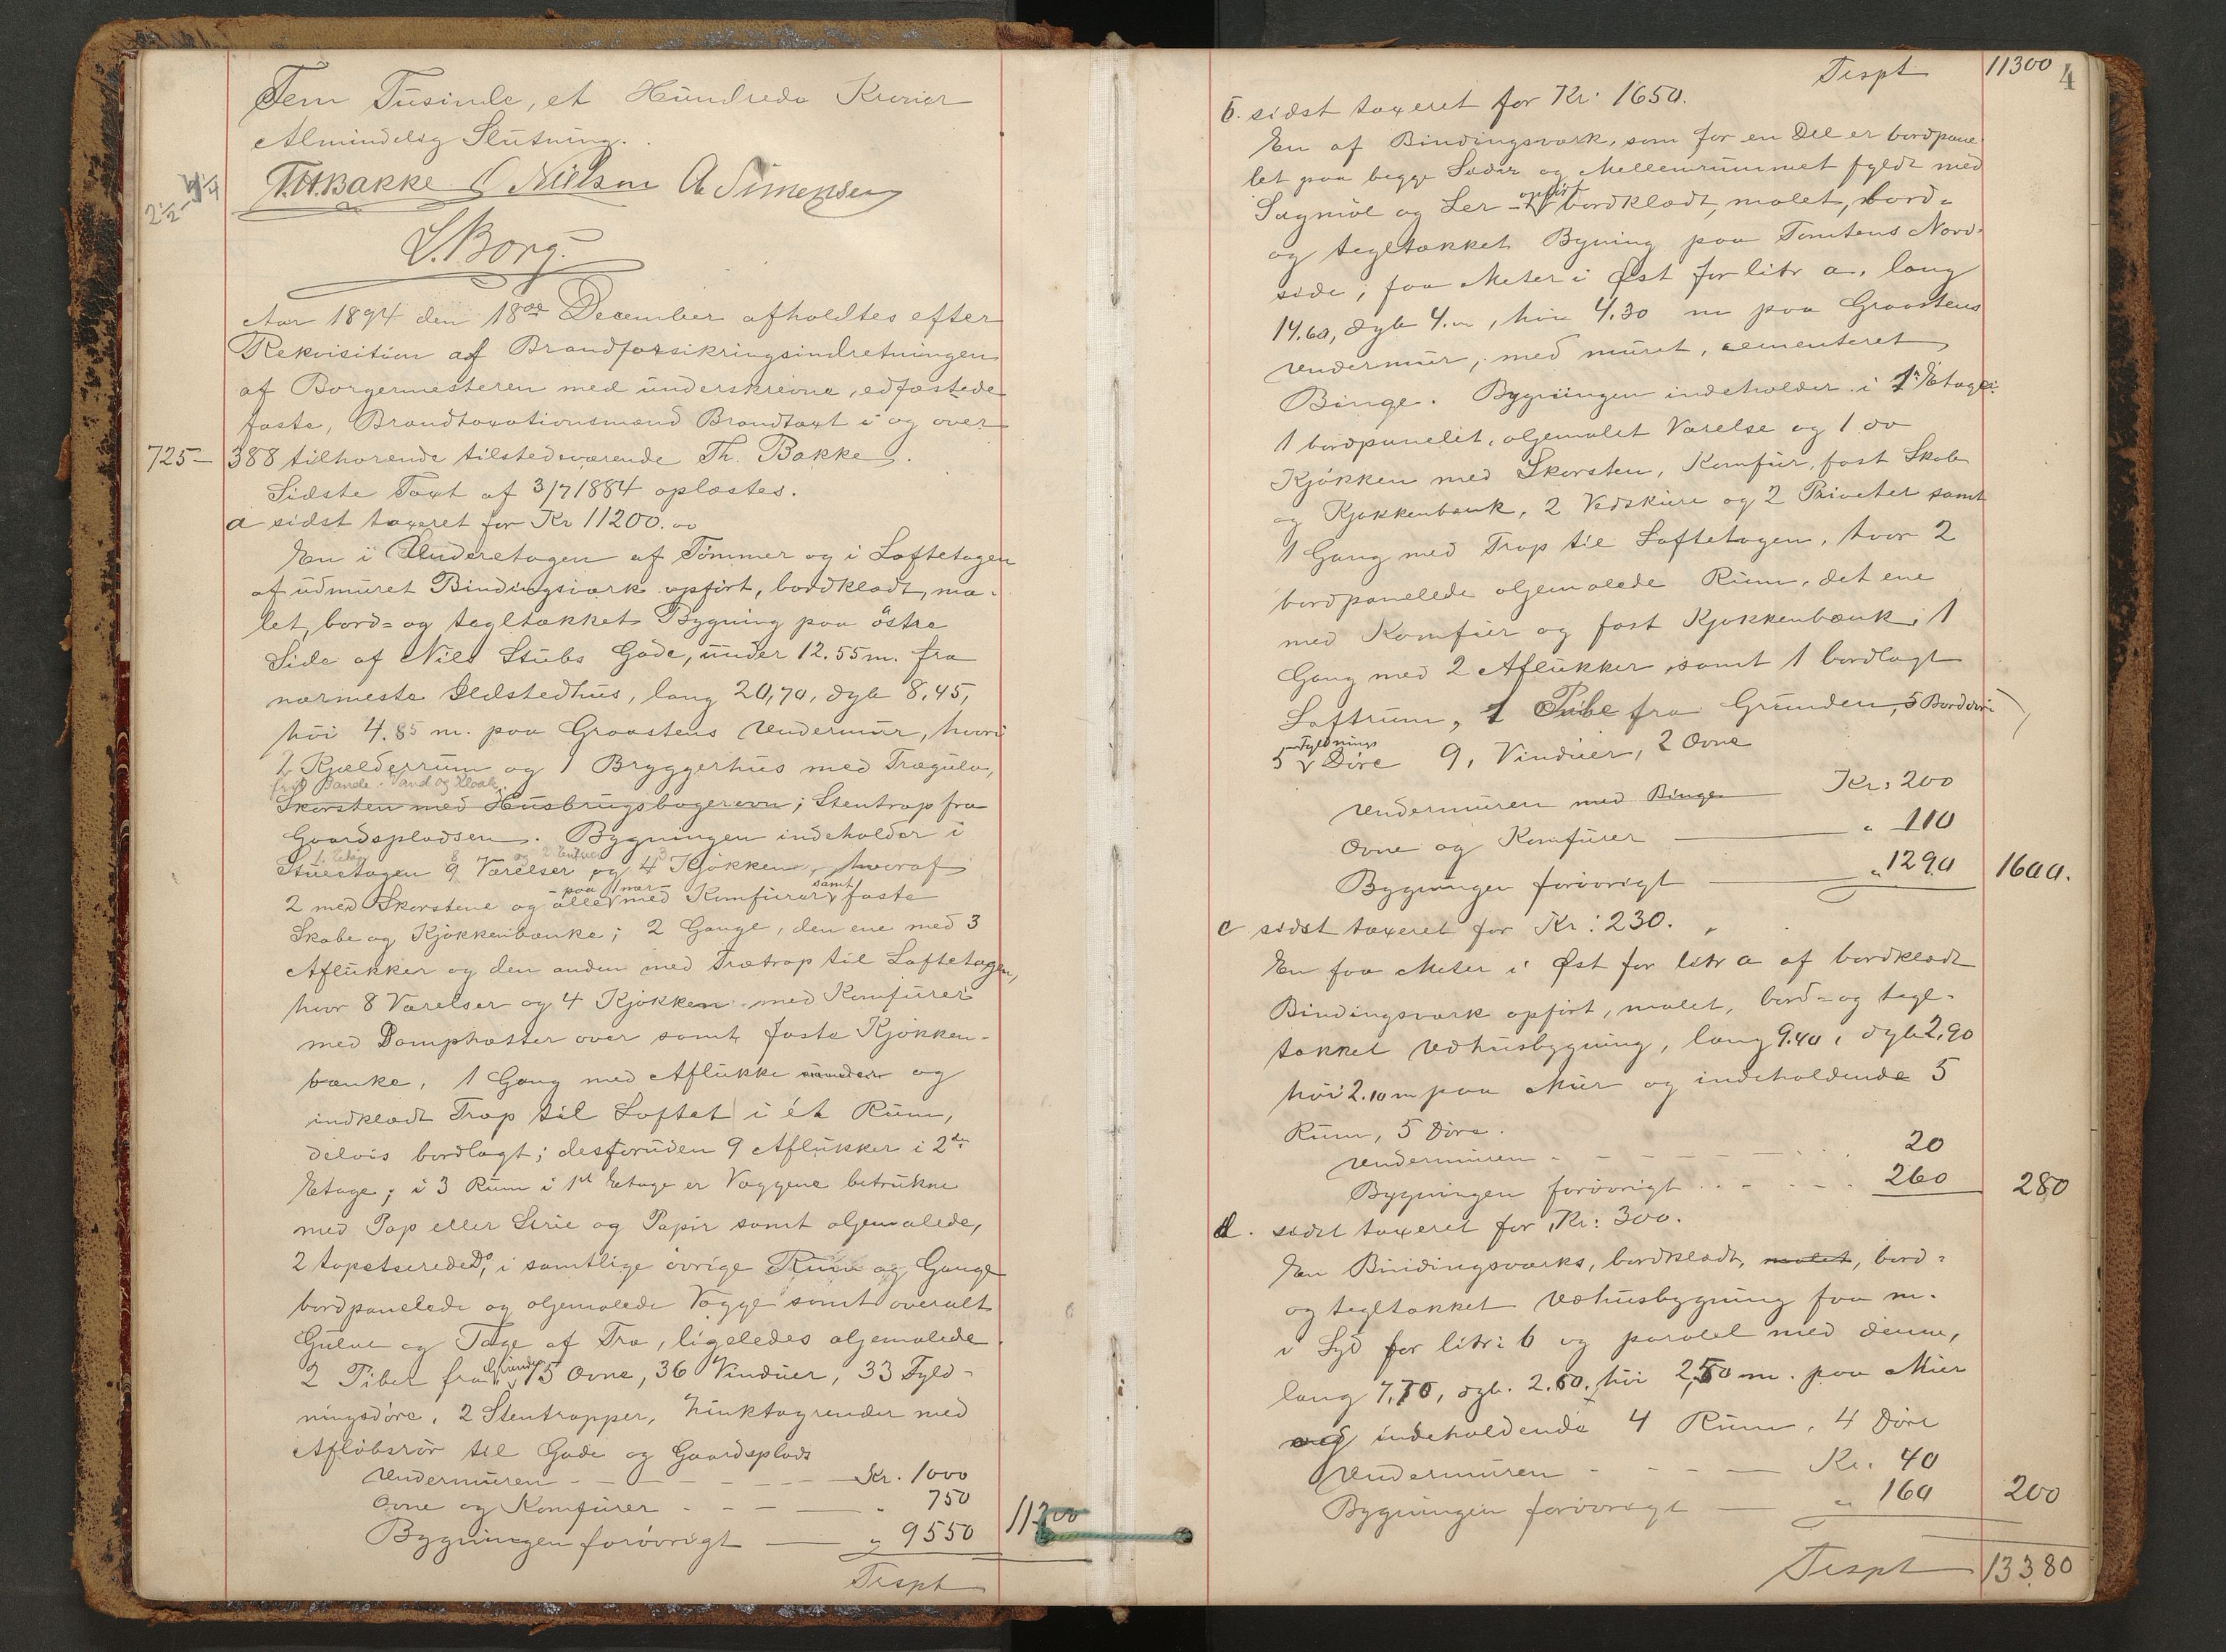 Fem Tusinde, et Hundrede Kroner
Almindelig Slutning.
T.H. BAKKE C Nielsen A Simensen
L. Borg.
Aar 1894 den 18de December afholdtes efter
Rekvisition af Brandforsikringsindretningen
af Borgermesteren med underskrevne, edfæstede
faste, Brandtaxationsmænd Brandtaxt i og over
725 — 388 tilhørende tilstedeværende Th. Bakke.
Sidste Taxt af 3/7 1884 oplæstes.
a sidst taxeret for Kr 11200.00
En i Underetagen af Tømmer og i Loftetagen
af udmuret Bindingsværk opført, bordklædt, ma-
let, bord= og tegltækket Bygning paa østre
Side af Niels Stubs Gade, under 12.55 m. fra
nærmeste Ildstedhus, lang 20,70, dyb 8,45,
høi 4.85 m. paa Graastens Undermur, hvori
2 Kjælderrum og 1 Bryggerhus med Trægulv,
Vand og Kloak
Skorsten med Husbrugsbagerovn; Stentrap fra
Gaardspladsen. Bygningen indeholder i
1. Etage 8 og 2 Entreer 3
Stuetagen 9 Værelser og 4 Kjøkken, hvoraf
- paa 1 nær - samt
2 med Skorstene og alle med Komfurer faste
Skabe og Kjøkkenbænke; 2 Gange, den ene med 3
Aflukker og den anden med Trætrap til Loftetagen,
hvor 8 Værelser og 4 Kjøkken med Komfurer
med Damphætter over samt faste Kjøkken-
bænke, 1 Gang med Aflukke under og
indklædt Trap til Loftet i ét Rum,
delvis bordlagt; desforuden 9 Aflukker i 2den
Etage; i 3 Rum i 1st Etage er Væggene betrukne
med Pap eller Strie og Papir samt oljemalede,
2 tapetserede Do, i samtlige øvrige Rum og Gange
bordpanelede og oljemalede Vægge samt overalt
Gulve og Tage af Træ, ligeledes oljemalede.
2 Piber fra Grunden, 15 Ovne, 36 Vinduer, 33 Fyld-
ningsdøre, 2 Stentrapper, Zinktagrender med
Afløbsrør til Gade og Gaardsplads
Undermuren - - - - - - Kr. 1000
Ovne og Komfurer - - - " 750
Bygningen forøvrigt — " 9550 11300
Tr­spt
Trspt 11300 4
b. sidst taxeret for Kr. 1650.
En af Bindingsværk, som for en Del er bordpane
let paa begge Sider og Mellemrummet fyldt med
opført
Sagmøl og Ler - bordklædt, malet, bord=
og tegltækket Bygning paa Tomtens Nord-
side; faa Meter i Øst for litr a. lang
14.60, dyb 4.00, høi 4.30 m paa Graastens
Undermur, med muret, cementeret
Binge. Bygningen indeholder i 1st Etage:
1 bordpanelet, oljemalet Værelse og 1 do
Kjøkken med Skorsten, Komfur, fast Skab
og Kjøkkenbænk, 2 Vedskure og 2 Priveter samt
1 Gang med Trap til Loftetagen, hvor 2
bordpanelede oljemalede Rum, det ene
med Komfur og fast Kjøkkenbænk; 1
Gang med 2 Aflukker samt 1 bordlagt
Loftrum, 1 Pibe fra Grunden, 5 Borddøre
Fyldnings
5 Døre 9, Vinduer, 2 Ovne
Undermuren med Binge — Kr: 200
Ovne og Komfurer — " 110
Bygningen forøvrigt — " 1290 1600.
c sidst taxeret for Kr: 230.
En faa Meter i Øst for litr a af bordklædt
Bindingsværk opført, malet, bord= og tegl-
tækket Vedhusbygning, lang 9.40, dyb 2.90
høi 2.10 m paa Mur og indeholdende 5
Rum, 5 Døre.
Undermuren - - - - - - 20
Bygningen forøvrigt - - - - 260 280
d. sidst taxeret for Kr: 300.
En Bindingsværks, bordklædt, malet, bord=
og tegltækket Vedhusbygning faa m.
i Syd for litr: b og paralel med denne,
lang 7.70, dyb. 2.60. høi 2,50 m. paa Mur
og indeholdende 4 Rum, 4 Døre
Undermuren - - - — Kr. 40
Bygningen forøvrigt — " 160 200
Trspt 13380